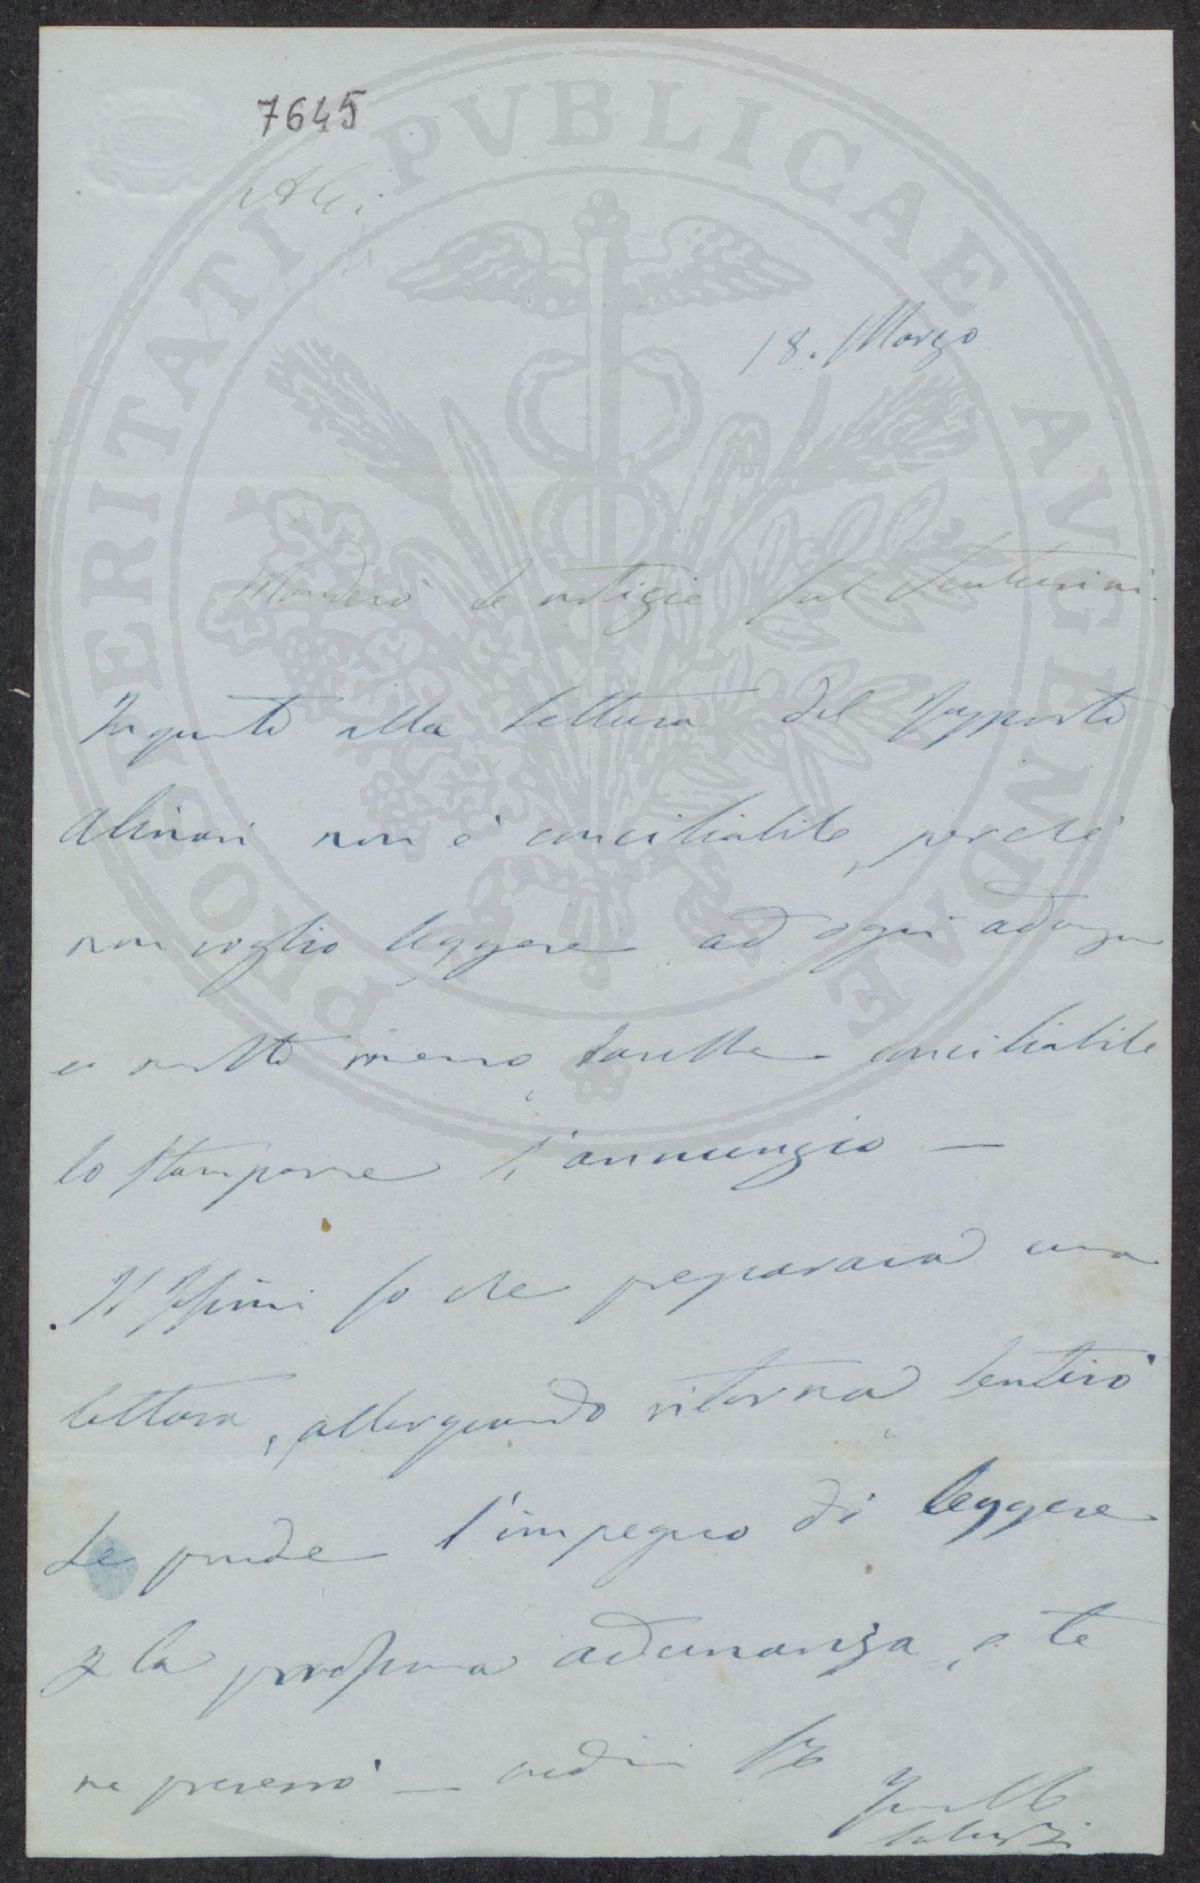 7645
PROSPERITATI PVBLICAE AVGENDAE
18. Marzo
Manderò le notizie sul
In quanto alla lettura del Rapporto
Alinari non è conciliabile, perché
non voglio leggere ad ogni adunza
e molto meno sarebbe conciliabile
lo stampare l'annunzio —
Il so che preparava una
lettura, allorquando ritorna sentirò
se prende l'impegno di leggere
p la prossima adunanza, e te
ne preverrò — credi